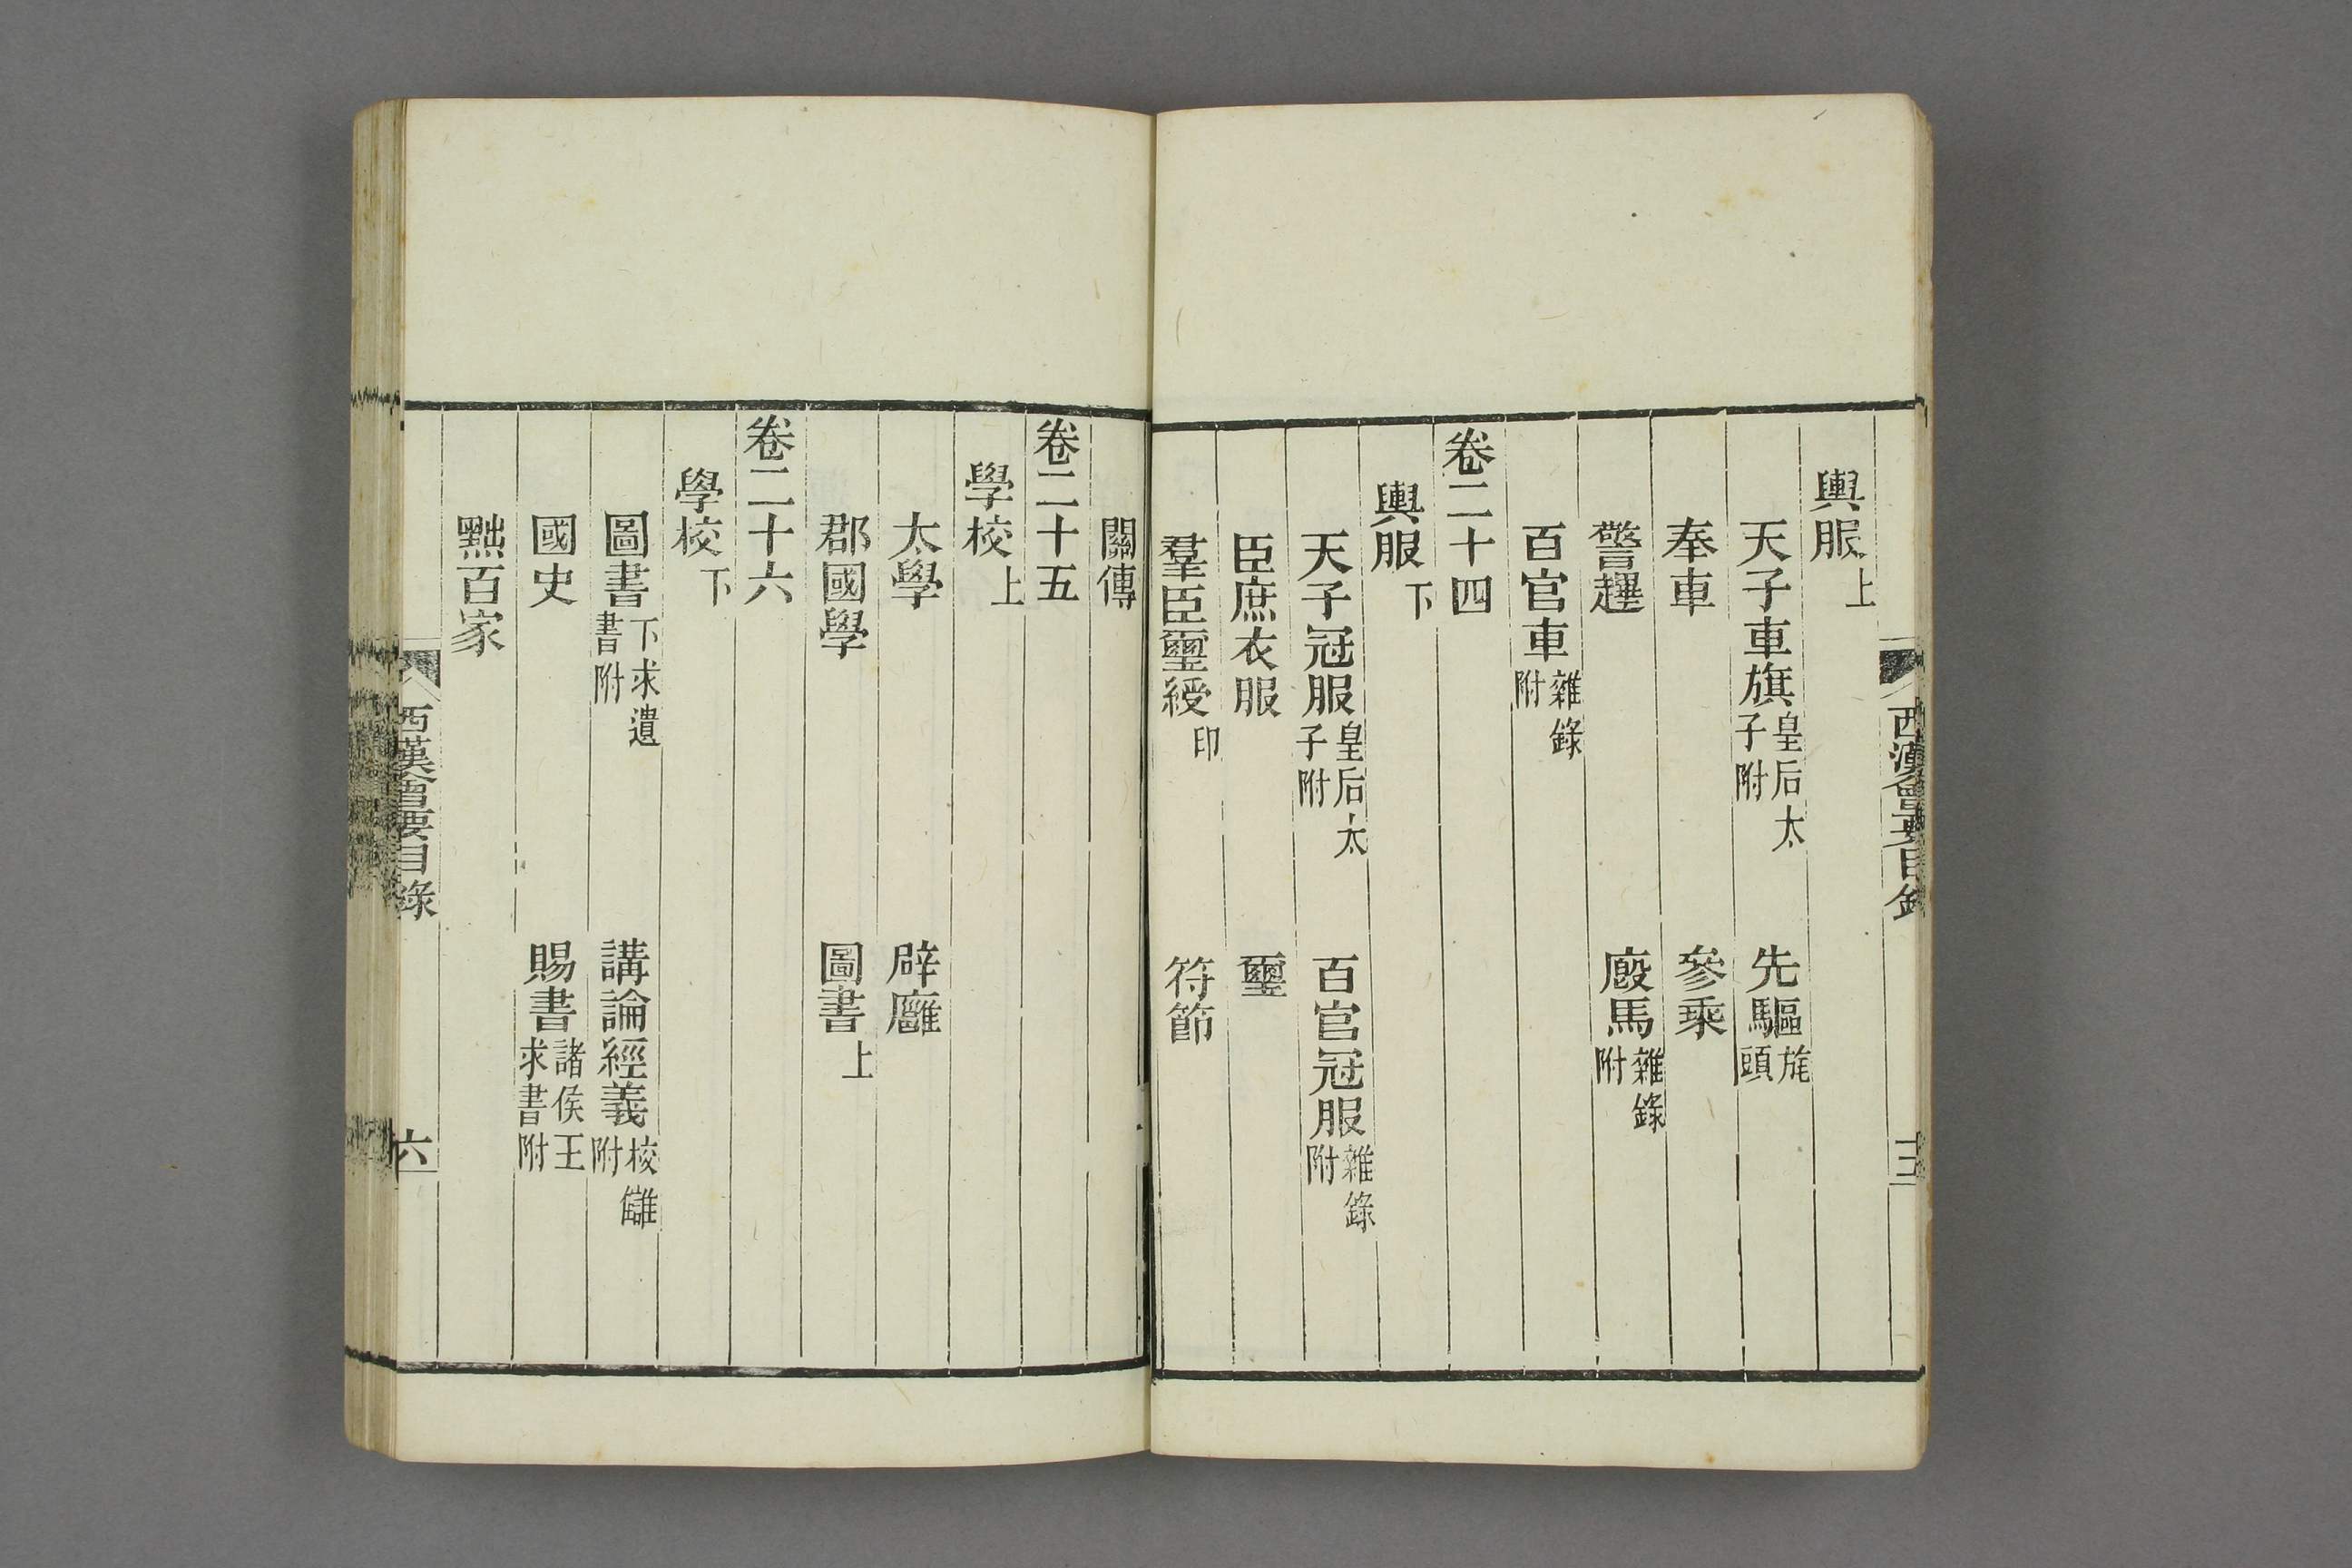 輿服上
天子車旗皇后太子附 先驅旄頭
奉車 參乘
警趯 廄馬雜錄附
百官車雜錄附
卷二十四
輿服下
天子冠服皇后太子附 百官冠服雜錄附
臣庶衣服 璽
羣臣璽綬印 符節
關傳
卷二十五
學校上
太學 辟廱
郡國學 圖書上
卷二十六
學校下
圖書下求遺書附 講論經義校讎附
國史 賜書諸侯王求書附
黜百家
西漢會要目錄
六